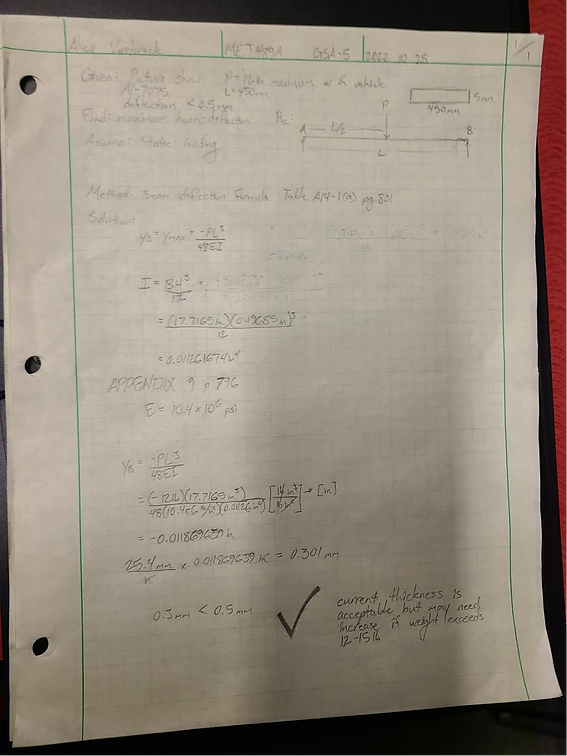 MET 489A GSA-5 2022 10 25 1/1
Given: Picture shown P = 12lb maximum w/ vehicle
Al-7075 L = 450mm
deflection < 0.5mm
Find: maximum beam deflection Pic:
Assume: Static loading
A L/2 P B
L
5mm
450mm
Method: Beam deflection Formula Table A14-1(a) pg 801
Solution:
yB = ymax = -PL³/48EI
I = BH³/12 =
= (17.7165in)(0.19685in)³/12
= 0.01126 in⁴
APPENDIX 9 p 796
E = 10.4×10⁶ psi
yB = -PL³/48EI
= (-12lb)(17.7165in³)/48(10.4E6 lb/in²)(0.01126in⁴) → [in]
= -0.011869639in
25.4mm/in × 0.011869639in = 0.301mm
0.3mm < 0.5mm ✓
current thickness is
acceptable but may need
increase if weight exceeds
12-15lb